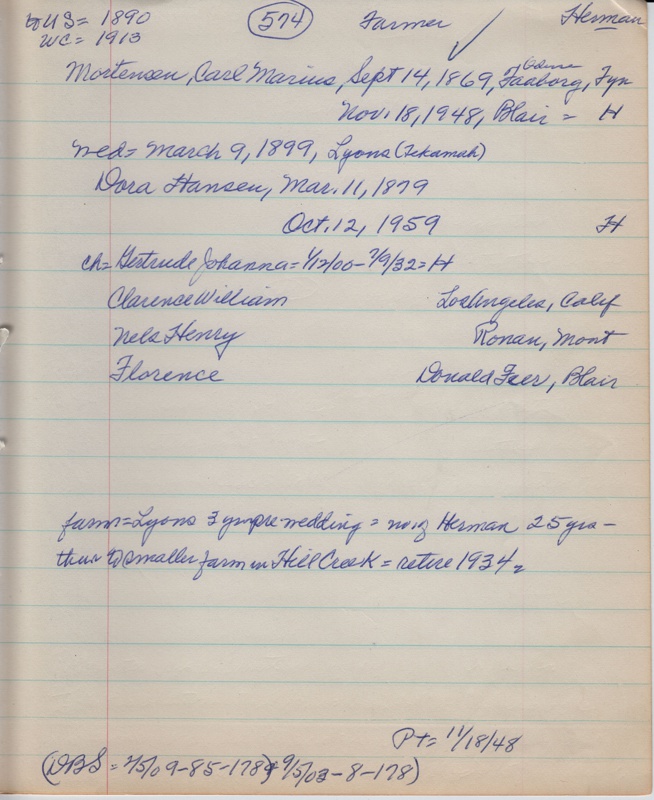 to US = 1890 574 Farmer Herman
WC = 1913
Mortensen, Carl Marius, Sept 14, 1869, Faaborg, Fyn
Nov. 18, 1948, Blair = H
wed = March 9, 1899, Lyons (Tekamah)
Dora Hansen, Mar. 11, 1879
Oct. 12, 1959 H
ch = Gertrude Johanna = 1/12/00 - 7/9/32 = H
Clarence William Los Angeles, Calif
Nels Henry Ronan, Mont
Florence Donald Feer, Blair
farm = Lyons 3 y pre-wedding = no. of Herman 25 yrs -
then to smaller farm in Hill Creek = retire 1934
Pt = 11/18/48
(DBS = 9-85-178 + 9/5/03-8-178)